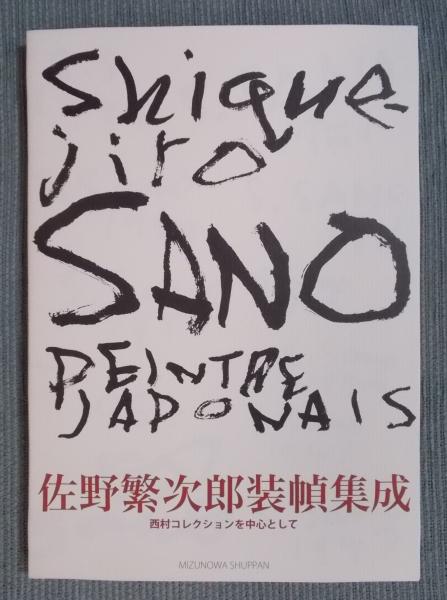 Shigue-
jiro
SANO
PEINTRE
JAPONAIS
佐野繁次郎装幀集成
西村コレクションを中心として
MIZUNOWA SHUPPAN